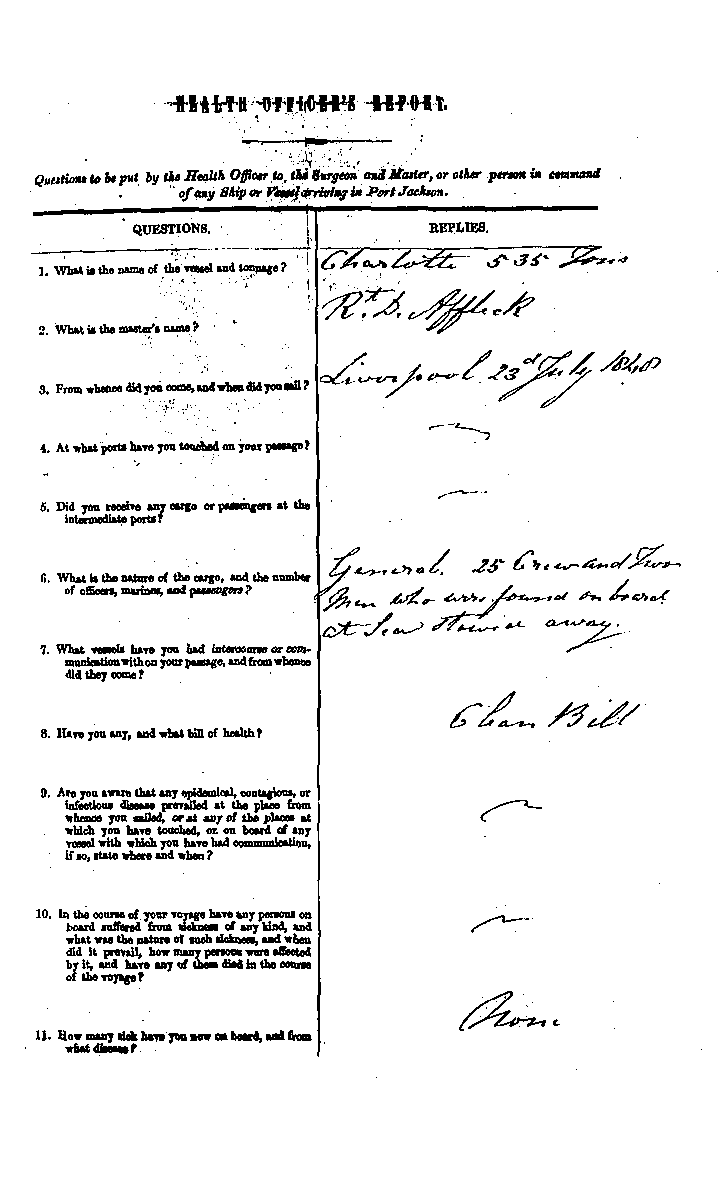 HEALTH OFFICER'S REPORT.
Questions to be put by the Health Officer to the Surgeon and Master, or other person in command
of any Ship or Vessel arriving in Port Jackson.
QUESTIONS.
REPLIES.
1. What is the name of the vessel and tonnage?
Charlotte 535 Tons
2. What is the master's name?
Rt. D. Affleck
3. From whence did you come, and when did you sail?
Liverpool 23d July 1848
4. At what ports have you touched on your passage?
5. Did you receive any cargo or passengers at the
intermediate ports?
6. What is the nature of the cargo, and the number
of officers, marines, and passengers?
General. 25 Crew and Two
Men who were found on board
at Sea stowed away.
7. What vessels have you had intercourse or com-
munication with on your passage, and from whence
did they come?
8. Have you any, and what bill of health?
Clean Bill
9. Are you aware that any epidemical, contagious, or
infectious disease prevailed at the place from
whence you sailed, or at any of the places at
which you have touched, or on board of any
vessel with which you have had communication,
if so, state where and when?
10. In the course of your voyage have any persons on
board suffered from sickness of any kind, and
what was the nature of such sickness, and when
did it prevail, how many persons were affected
by it, and have any of them died in the course
of the voyage?
11. How many sick have you now on board, and from
what disease?
None